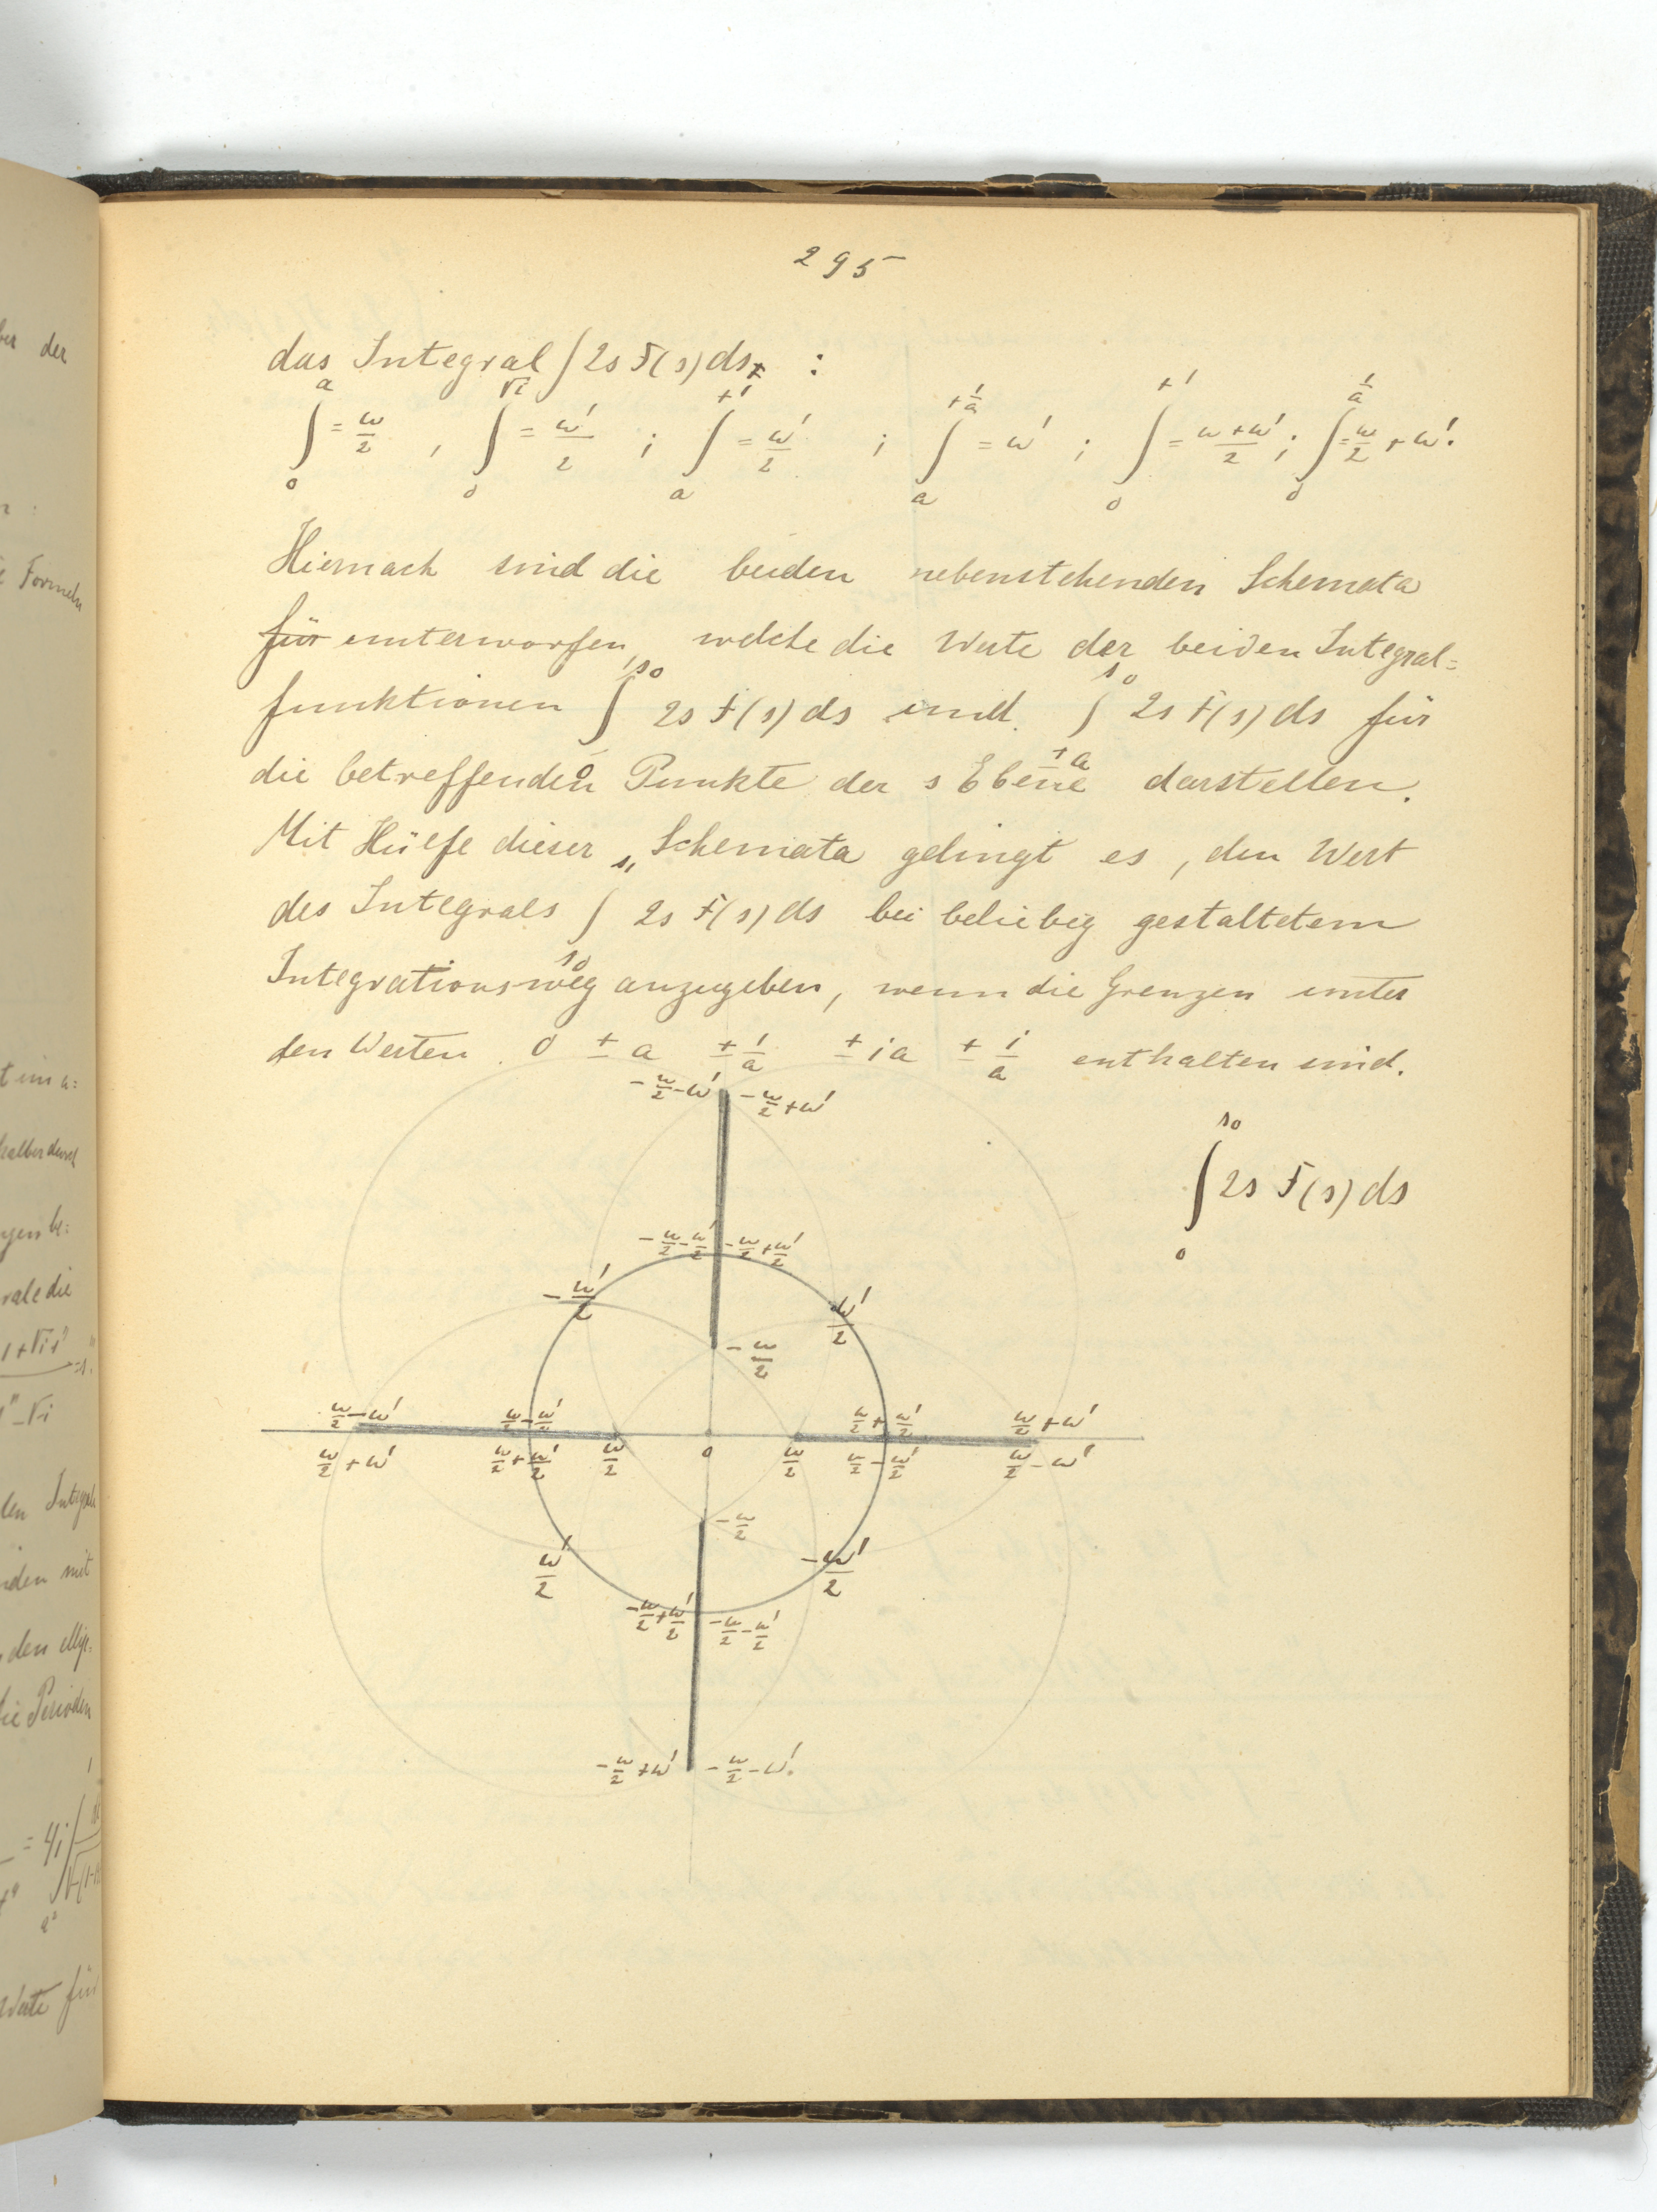 295
das Integral ∫ 2s F(s) ds :
∫₀^a = ω/2 , ∫₀^√i = ω'/2 ; ∫ₐ^+1 = ω'/2 ; ∫ₐ^+1/a = ω' ; ∫₀^+1 = ω+ω'/2 ; ∫₀^1/a = ω/2 + ω'.
Hiernach sind die beiden nebenstehenden Schemata
für unterworfen, welche die Werte der beiden Integral=
funktionen ∫₀^s₀ 2s F(s) ds und ∫_{+a}^s₀ 2s F(s) ds für
die betreffenden Punkte der s Ebene darstellen.
Mit Hülfe dieser Schemata gelingt es, den Wert
des Integrals ∫_{s₀}^{s₁} 2s F(s) ds bei beliebig gestaltetem
Integrationsweg anzugeben, wenn die Grenzen unter
den Werten 0 ± a ± 1/a ± ia ± i/a enthalten sind.
-ω/2-ω' -ω/2+ω'
∫₀^s₀ 2s F(s) ds
-ω/2-ω'/2 -ω/2+ω'/2
-ω'/2 ω'/2
-ω/2
ω/2-ω' ω/2-ω'/2 ω/2+ω'/2 ω/2+ω'
ω/2+ω' ω/2+ω'/2 ω/2 0 ω/2 ω/2-ω'/2 ω/2-ω'
-ω/2
ω'/2 -ω'/2
-ω/2+ω'/2 -ω/2-ω'/2
-ω/2+ω' -ω/2-ω'.
ber der
Formeln
halber durch
rale die
den Integrale
den ellip.
die Perioden
Werte für